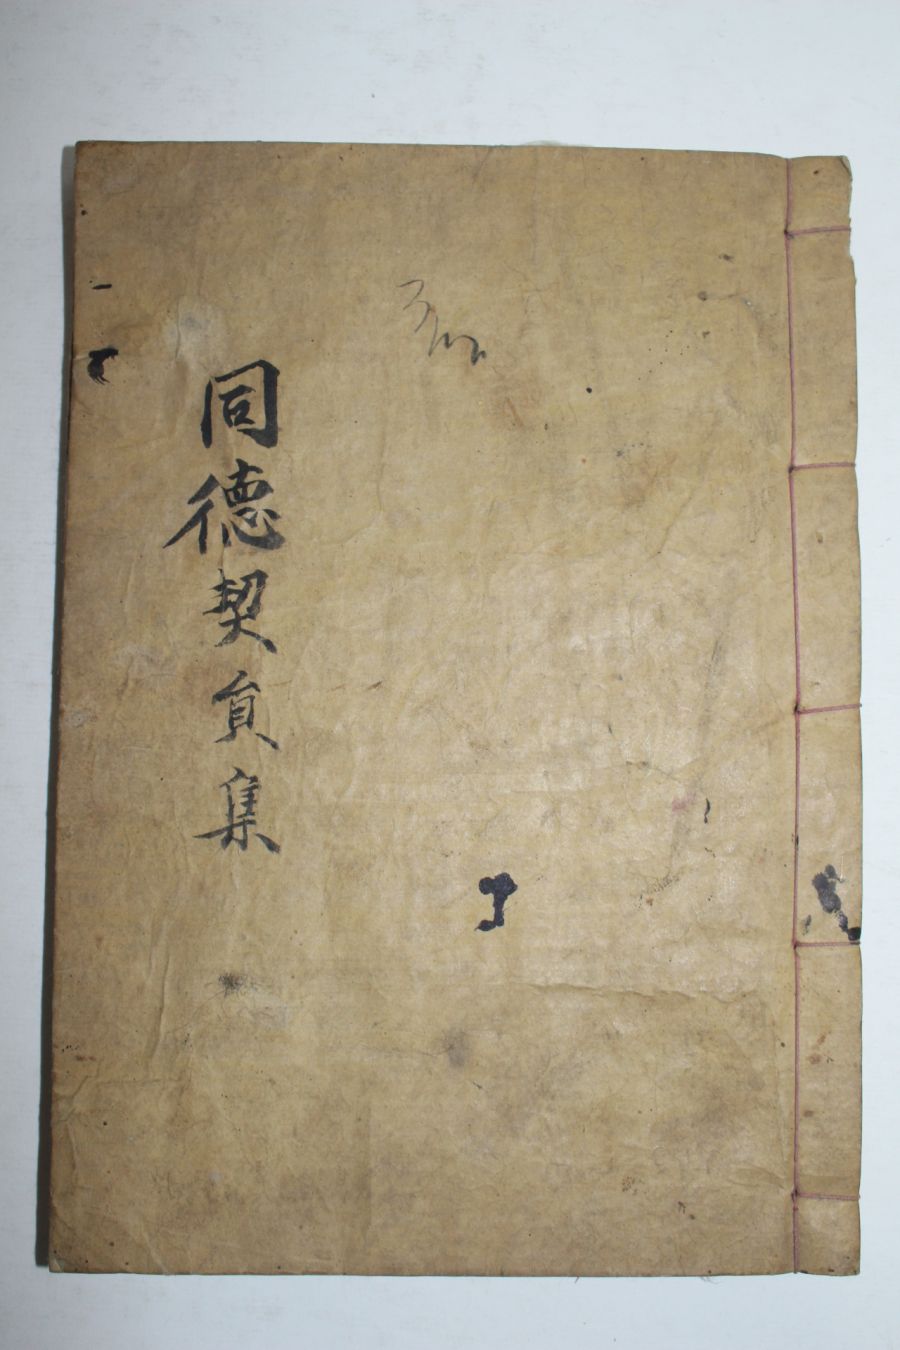 同德契負集